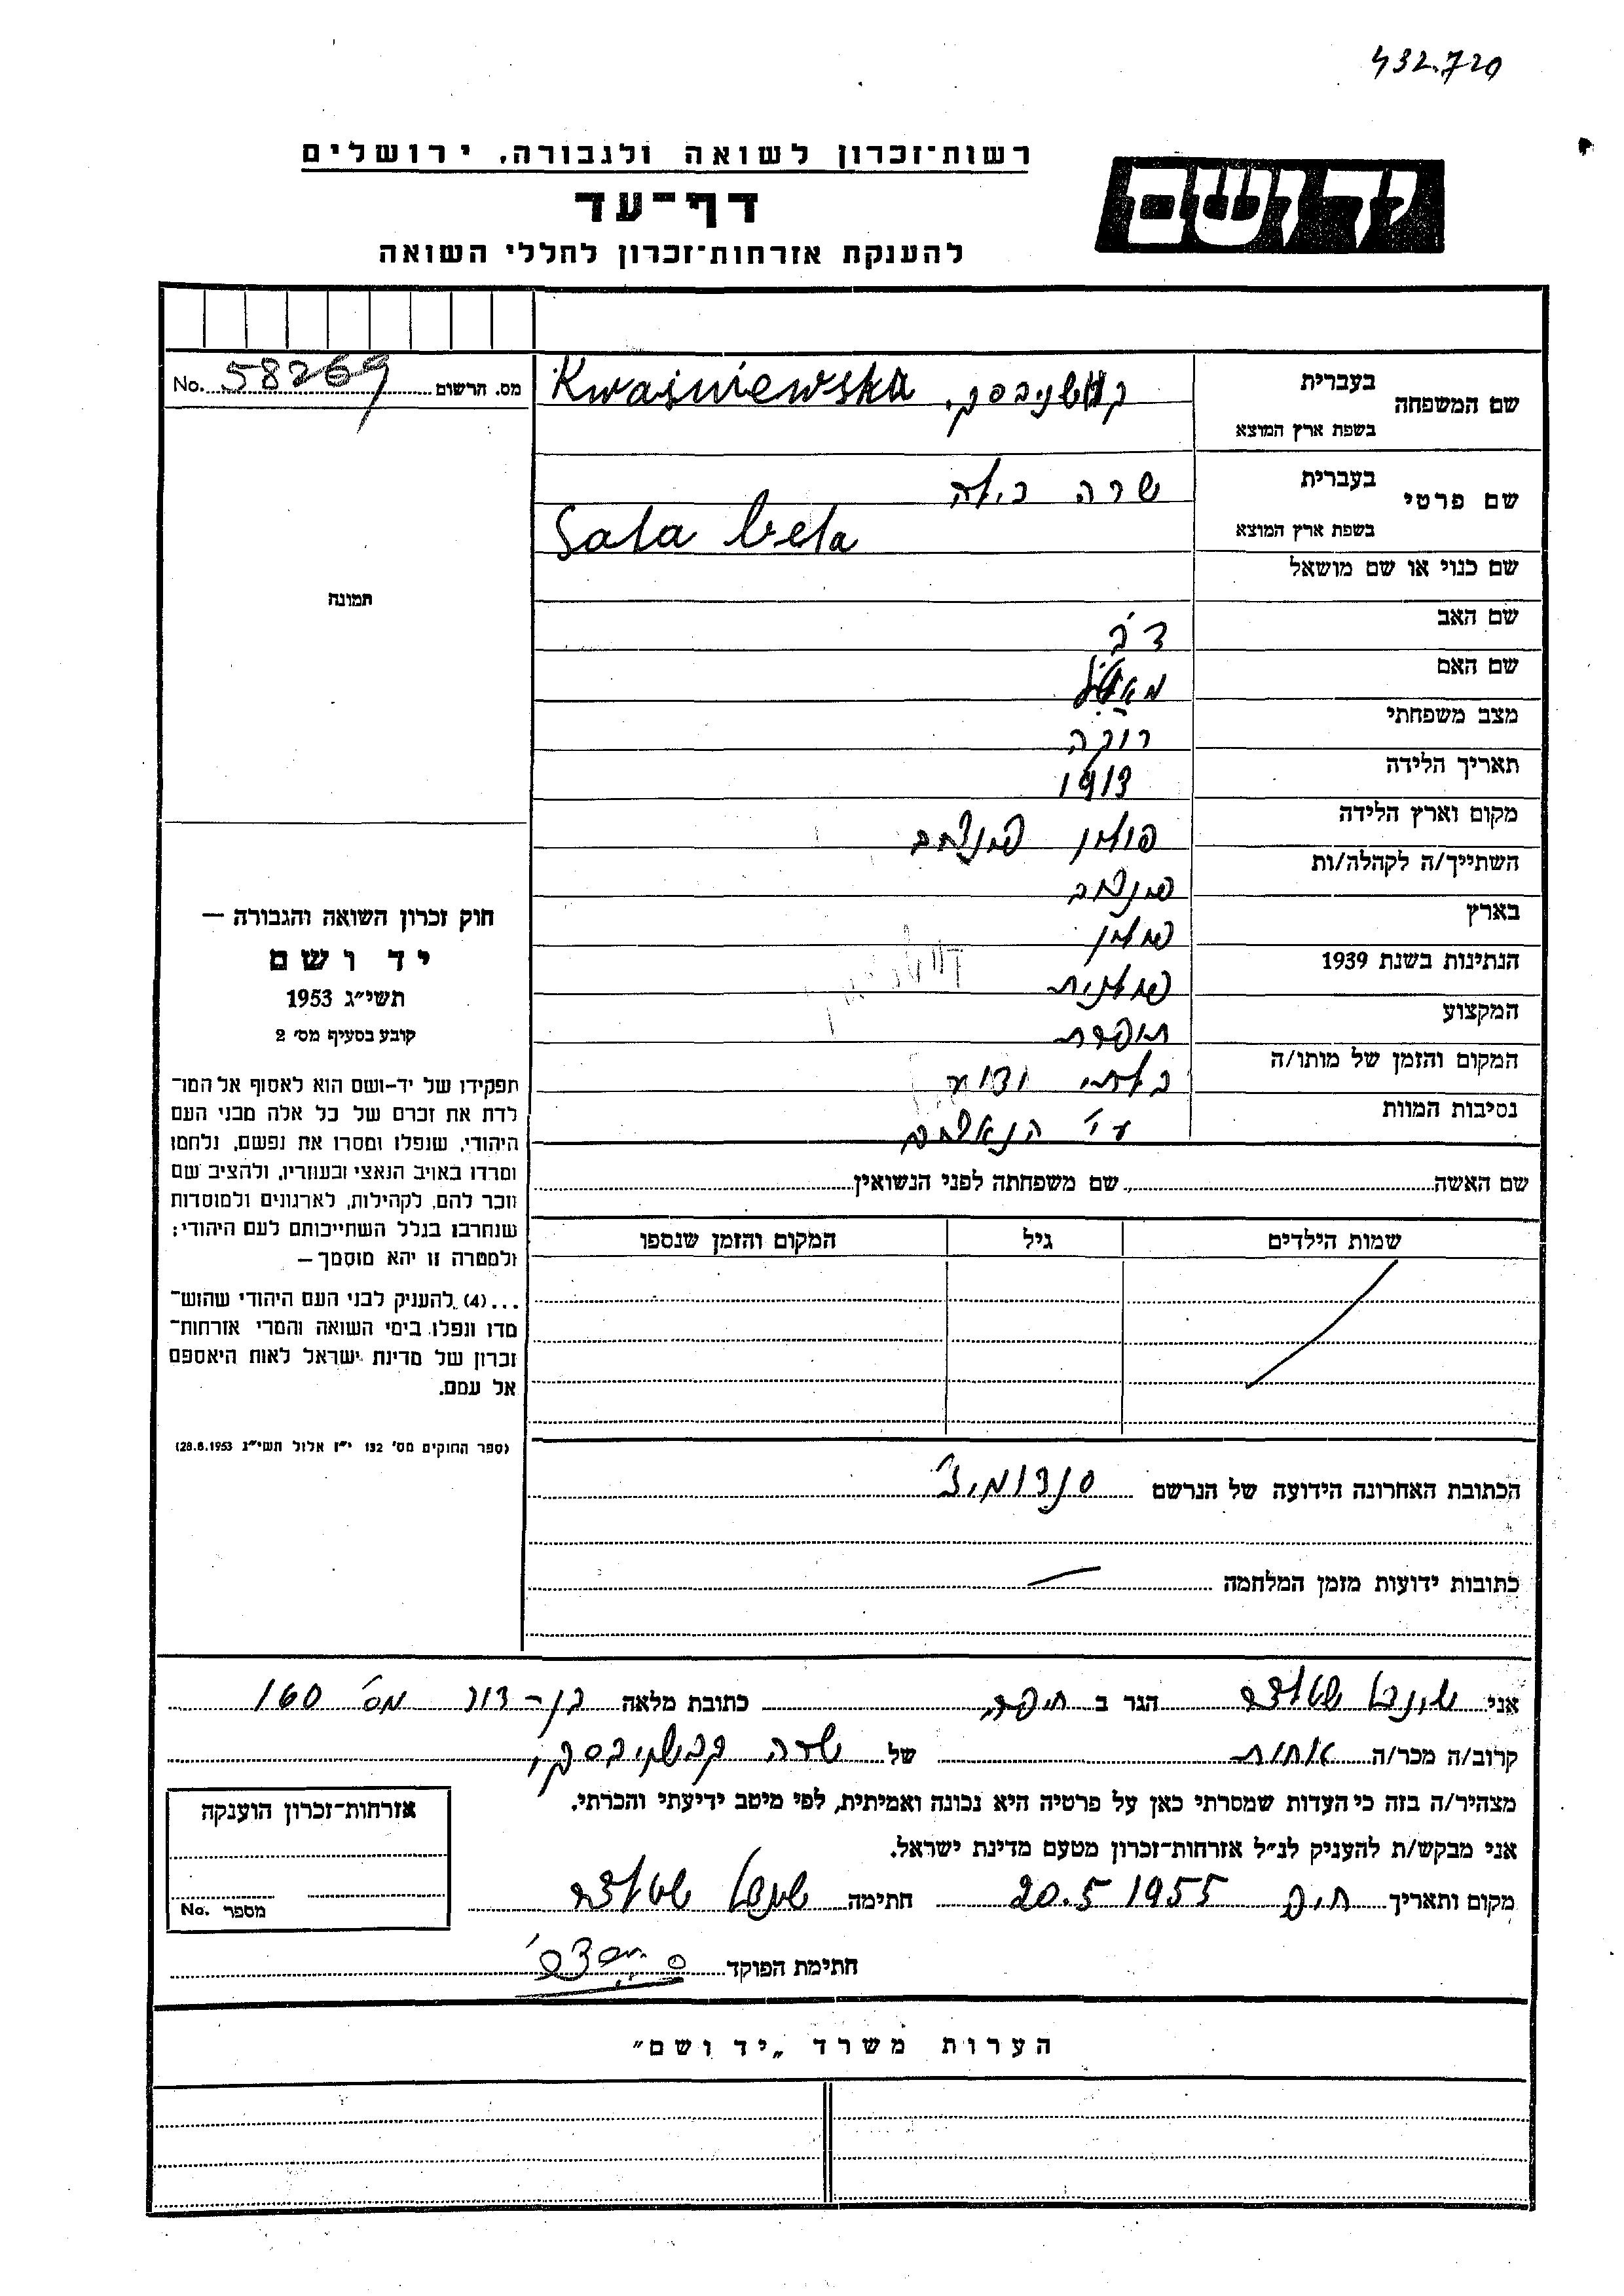 432.720
רשות־זכרון לשואה ולגבורה, ירושלים
יד ושם
דף־עד
להענקת אזרחות־זכרון לחללי השואה
מס. הרשום No. 58269
שם המשפחה
בעברית
בשפת ארץ המוצא
Kwaśniewska
שם פרטי
בעברית שרה בילה
בשפת ארץ המוצא Sala bela
שם כנוי או שם מושאל
שם האב דב
שם האם
מצב משפחתי רווקה
תאריך הלידה 1913
מקום וארץ הלידה פולין
השתייך/ה לקהלה/ות
בארץ פולין
הנתינות בשנת 1939 פולנית
המקצוע תופרת
המקום והזמן של מותו/ה בלתי ידוע
נסיבות המוות ע״י הנאצים
שם האשה
שם משפחתה לפני הנשואין
שמות הילדים
גיל
המקום והזמן שנספו
תמונה
חוק זכרון השואה והגבורה —
יד ושם
תשי״ג 1953
קובע בסעיף מס׳ 2
תפקידו של יד-ושם הוא לאסוף אל המו־
לדת את זכרם של כל אלה מבני העם
היהודי, שנפלו ומסרו את נפשם, נלחמו
ומרדו באויב הנאצי ובעוזריו, ולהציב שם
וזכר להם, לקהילות, לארגונים ולמוסדות
שנחרבו בגלל השתייכותם לעם היהודי;
ולמטרה זו יהא מוסמך —
...(4) להענוק לבני העם היהודי שהוש־
מדו ונפלו בימי השואה והמרי אזרחות־
זכרון של מדינת ישראל לאות היאספם
אל עמם.
(ספר החוקים מס׳ 132 י״ז אלול תשי״ג 28.8.1953)
הכתובת האחרונה הידועה של הנרשם סנדומיז׳
כתובות ידועות מזמן המלחמה
אני הגר ב כתובת מלאה מס׳ 160
קרוב/ה מכר/ה אחות של שרה קבשניבסקי
מצהיר/ה בזה כי העדות שמסרתי כאן על פרטיה היא נכונה ואמיתית, לפי מיטב ידיעתי והכרתי.
אני מבקש/ת להעניק לנ״ל אזרחות־זכרון מטעם מדינת ישראל.
מקום ותאריך 20.5 1955 חתימה
חתימת הפוקד
אזרחות־זכרון הוענקה
מספר No.
הערות משרד „יד ושם״